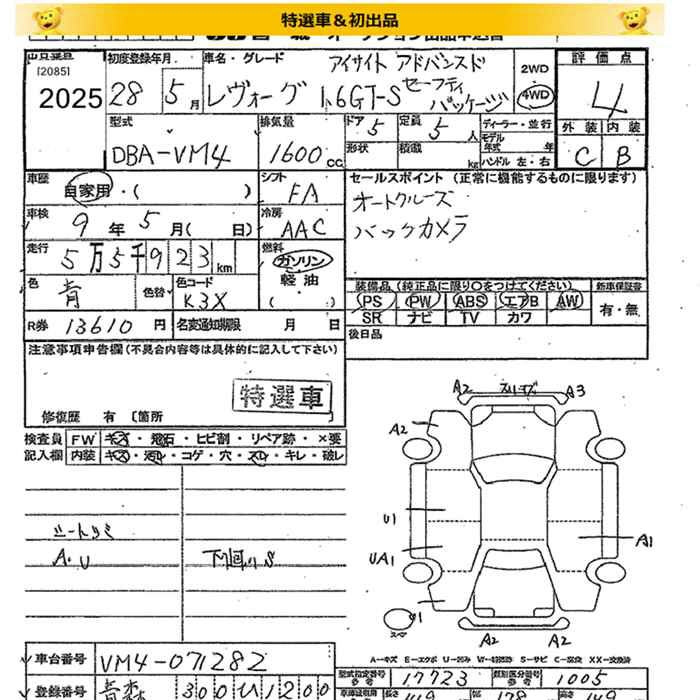 特選車＆初出品
[2085]
2025
初度登録年月
28年 5月
車名・グレード
アイサイト アドバンスド
レヴォーグ 1.6GT-S セーフティ
パッケージ
2WD
4WD
評価点
4
外装 内装
C B
型式
DBA-VM4
排気量
1600cc
ドア 5
定員 5人
形状
積載 kg
ディーラー・並行
モデル年式 年
ハンドル 左・右
車歴
自家用・( )
シフト
FA
車検
9年5月( 日)
冷房
AAC
走行
5万5千923km
燃料
ガソリン
軽油
( )
色
青
色替
色コード
K3X
R券 13610円
名変通知期限 月 日
セールスポイント（正常に機能するものに限ります）
オートクルーズ
バックカメラ
装備品（純正品に限り○をつけてください）
新車保証書
PS PW ABS エアB AW
有・無
SR ナビ TV カワ
後日品
注意事項申告欄（不具合内容等は具体的に記入して下さい）
特選車
修復歴 有 〔箇所 〕
検査員 FW キズ・飛石・ヒビ割・リペア跡・×要
記入欄 内装 キズ・汚れ・コゲ・穴・スレ・キレ・破レ
A2 A3
A2
U1
UA1
A1
U1
A2 A2
シートシミ
A・U
下回りS
A－キズ E－エクボ U－凹み W－補修跡 S－サビ C－腐食 XX－交換済
車台番号 VM4-071282
型式指定番号 17723
類別区分番号 1005
登録番号 青森 300 ひ 1200